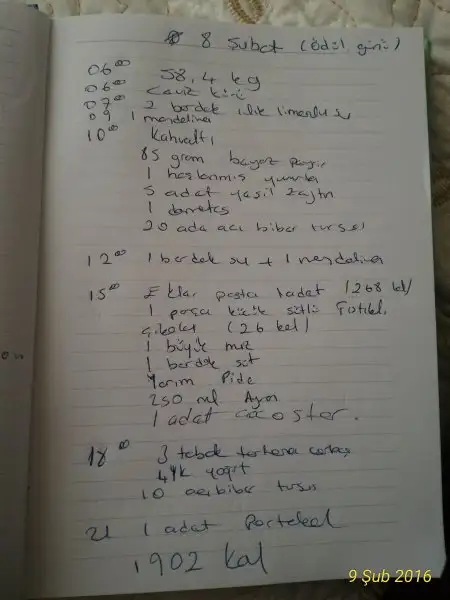 8 Şubat (ödül günü)
06⁰⁰ 58,4 kg
06⁰⁰ Ceviz kürü
07⁰⁰ 2 bardak ılık limonlu su
09 1 mandalina
10⁰⁰ Kahvaltı
85 gram beyaz peynir
1 haşlanmış yumurta
5 adet yeşil zeytin
1 domates
20 ade acı biber turşu
12⁰⁰ 1 bardak su + 1 mandalina
15⁰⁰ Ekler pasta 1 adet (268 kal)
1 parça küçük sütlü
çikolat (26 kal)
1 büyük muz
1 bardak süt
Yarım Pide
250 ml Ayran
1 adet
18⁰⁰ 3 tabak tarhana çorbası
4 yk yoğurt
10 acı biber turşu
21 1 adet Portakal
1902 kal
9 Şub 2016